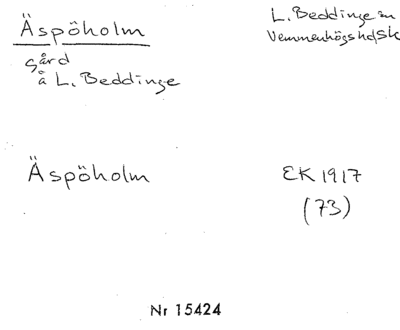 Äspöholm
gård
å L. Beddinge
L. Beddinge sn
Vemmenhögs hd, Sk
Äspöholm
EK 1917
(73)
Nr 15424